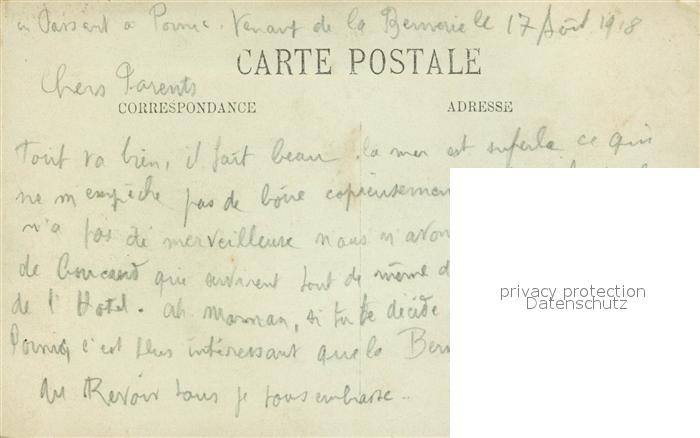 en Passant a Pornic. Venant de la Bernerie le 17 Août 1918
CARTE POSTALE
Chers Parents
CORRESPONDANCE ADRESSE
Tout va bien, il fait beau. la mer est superbe ce qui
ne m'empêche pas de boire copieusement
n'a pas été merveilleuse nous n'avon
de que arrivent tout de même d
de l'Hotel. Ah maman, si tu te décide
Pornic, c'est plus intéressant que la Bern
Au Revoir tous je vous embrasse..
privacy protection
Datenschutz